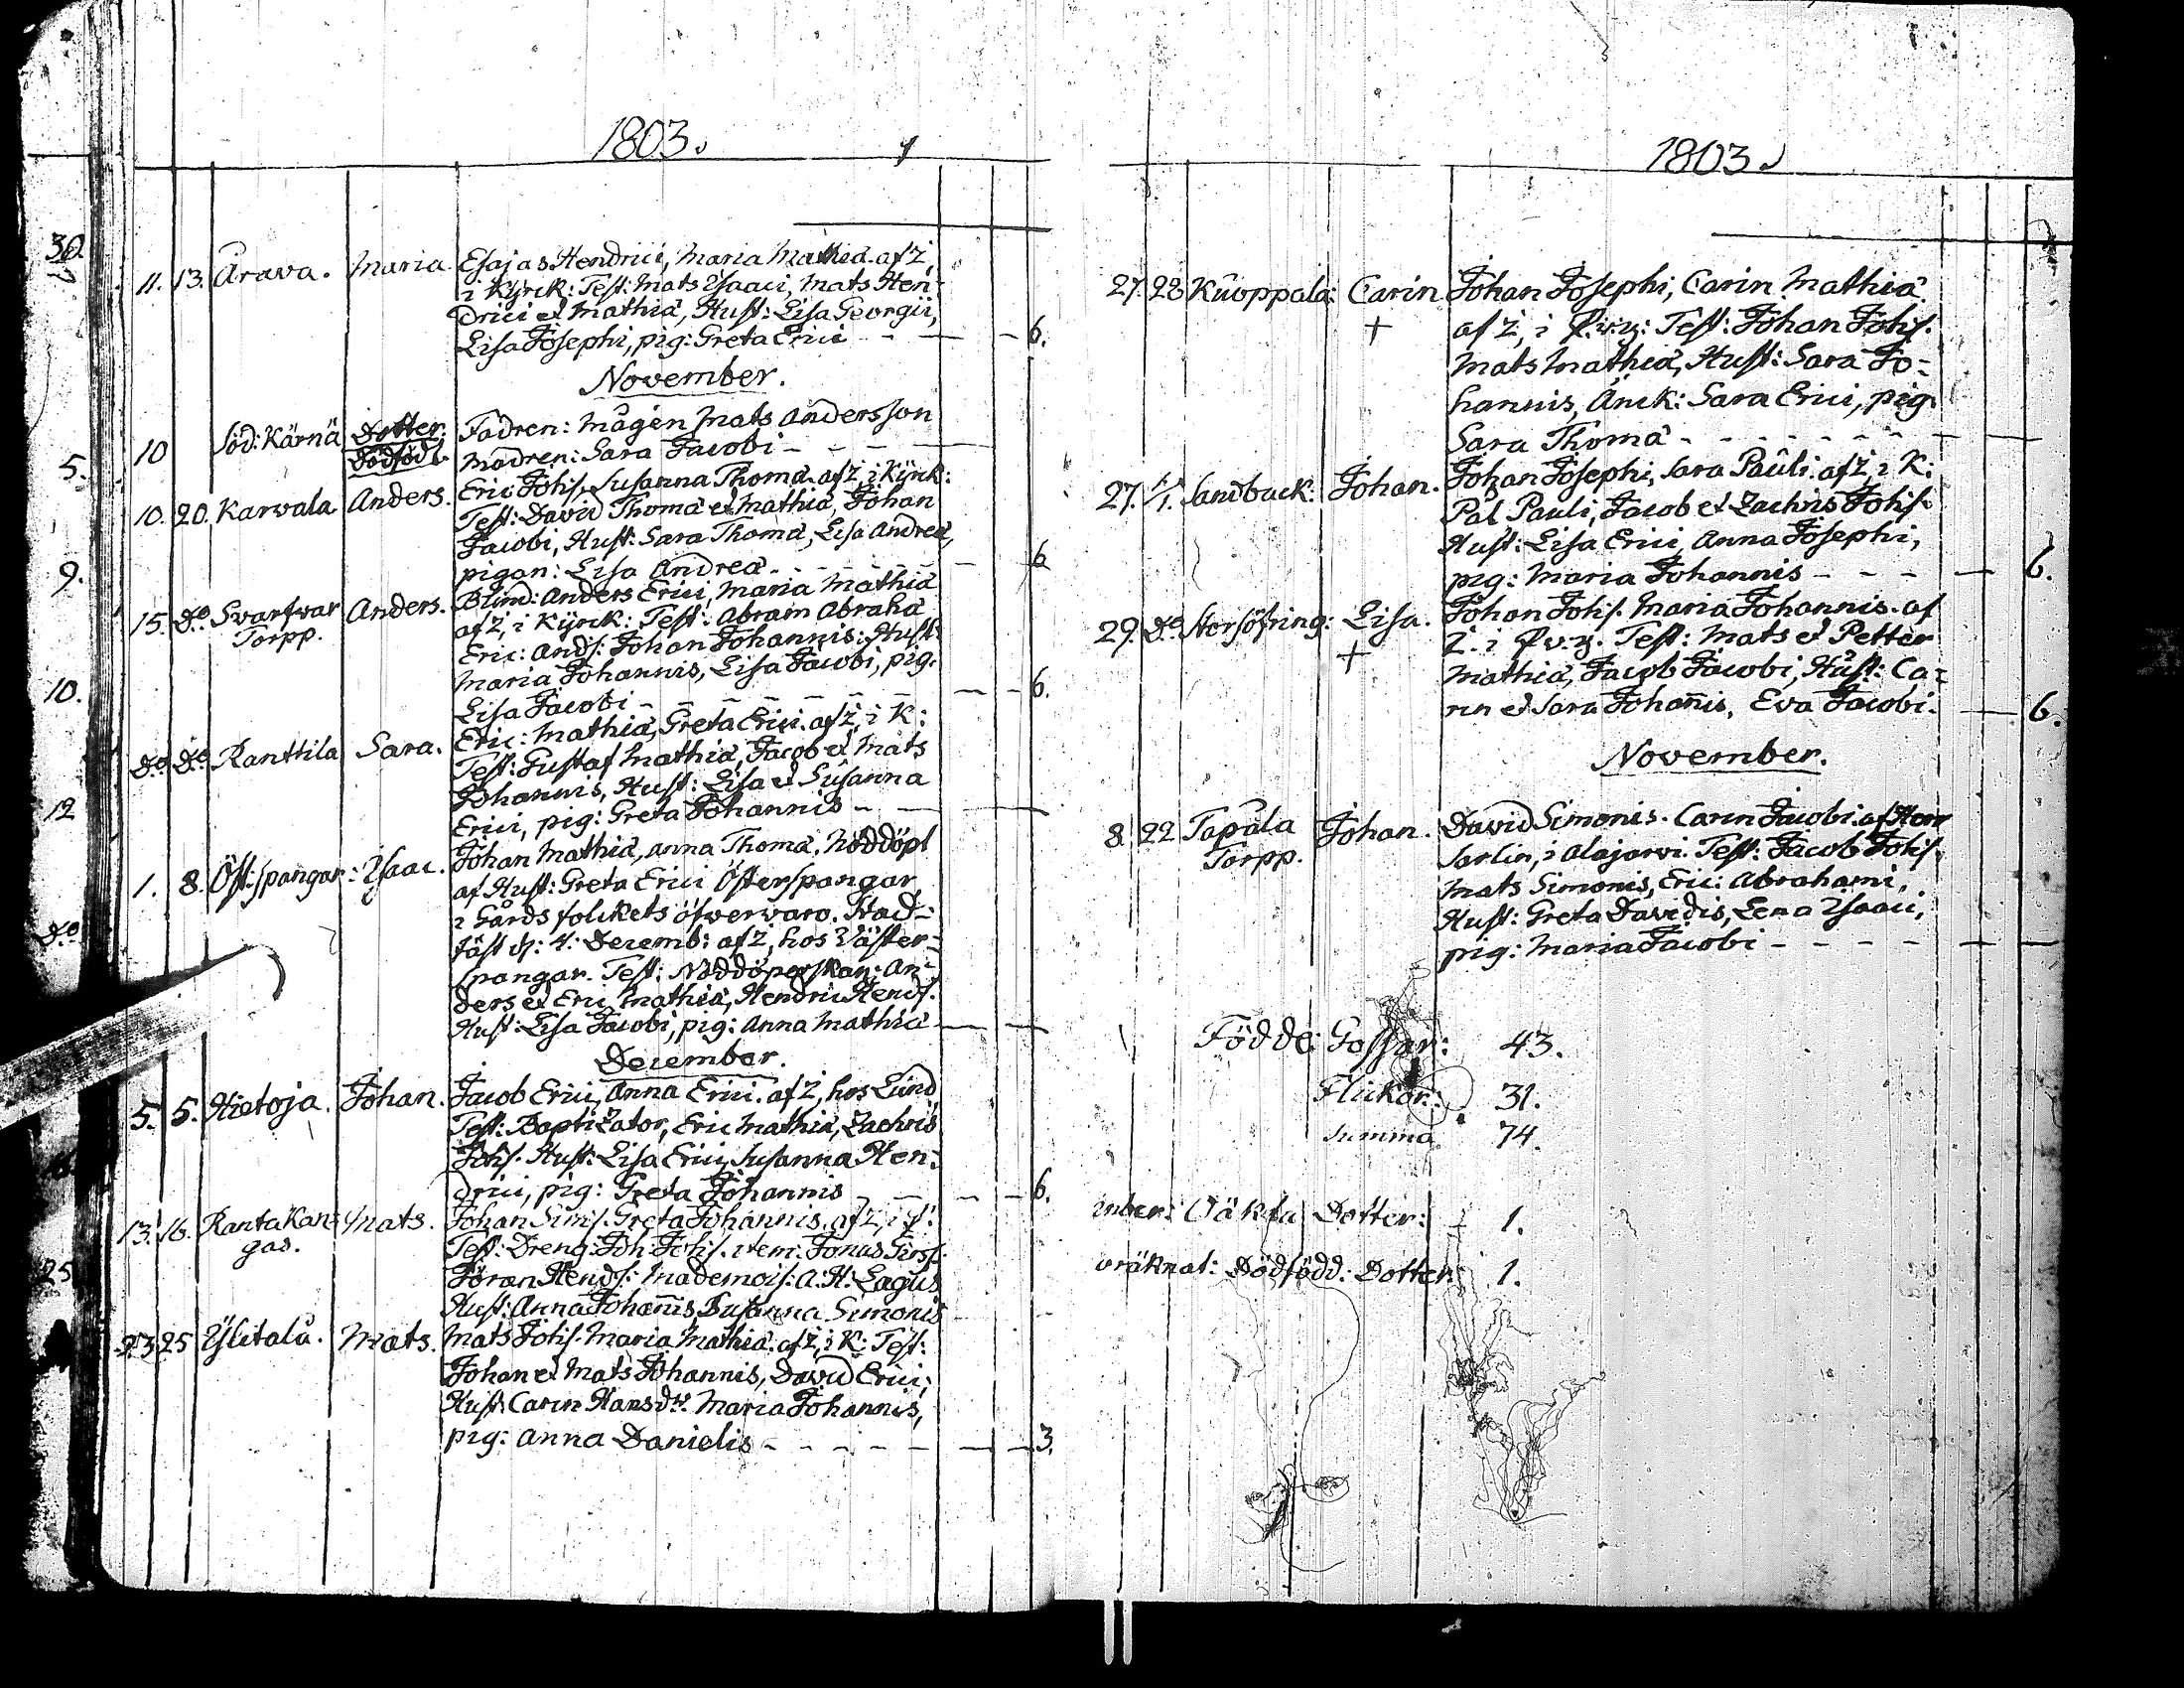 1803.
30.
11. 13. Arava. Maria. Esajas Hendrici, Maria Mathiæ. af Z,
i Kyrck: Test: Mats Isaaci, Mats Hen-
drici et Mathiæ, Hust: Lisa Georgii,
Lisa Josephi, pig: Greta Erici - - - 6.
November.
10 Söd: Kärnä Dotter. Fadren: Mågen Mats Andersson
Dödfödt Modren: Sara Jacobi - - - -
5.
10. 20. Karvala Anders. Eric Johs. Susanna Thomæ. af Z, i Kyrck:
Test: David Thomæ et Mathiæ, Johan
Jacobi, Hust: Sara Thomæ, Lisa Andreæ,
pigan: Lisa Andreæ - - - - 6
9.
15. Do. Svartvar Anders. Blind: Anders Erici, Maria Mathiæ
Torpp. af Z, i Kyrck: Test: Abram Abrahā
Eric: Ands. Johan Johannis: Hust:
Maria Johannis, Lisa Jacobi, pig:
Lisa Jacobi - - - - - - 6.
10.
Do. Do. Ranttila Sara. Eric: Mathiæ, Greta Erici. af Z, i K:
Test: Gustaf Mathiæ, Jacob et Mats
Johannis, Hust: Lisa et Susanna
Erici, pig: Greta Johannis - -
12
1. 8. Öst: spangar: Isaac. Johan Mathiæ, Anna Thomæ. Nöddöpt
af Hust: Greta Erici Österspangar
i Gårds folckets öfwerwaro. Stad-
Do
fäst d: 4: Decemb: af Z, hos Väster-
spangar. Test: Nöddöperskan: An-
ders et Eric Mathiæ, Hendric Hends.
Hust: Lisa Jacobi, pig: Anna Mathiæ - -
December.
5. 5. Hietoja. Johan. Jacob Erici, Anna Erici. af Z, hos Lund
Test: Baptizator, Eric Mathiæ, Zachris
Johs. Hust: Lisa Erici, Susanna Hen-
drici, pig: Greta Johannis - - - 6.
13. 16. Ranta Kan- Mats. Johan Sims. Greta Johannis. af Z, i
gas. Test: Dreng: Joh: Johs. item: Jonas
Jöran Hends: Mademois: A: H: Lagus
25
Hust: Anna Johannis, Susanna Simonis
23 25 Ylitalå. Mats. Mats Johs. Maria Mathiæ. af Z, i K: Test:
Johan et Mats Johannis, David Erici,
Hust: Carin Hansdr. Maria Johannis,
pig: Anna Danielis - - - - - 3.
1803.
27. 28 Kuoppala: Carin Johan Josephi, Carin Mathiæ
+ af Z, i Test: Johan Johs.
Mats Mathiæ, Hust: Sara Jo-
hannis, Änck: Sara Erici, pig
Sara Thomæ - - - - - -
27. 1/1. Sandback: Johan. Johan Josephi, Sara Pauli. af Z, i K:
Pål Pauli, Jacob et Zachris Johs.
Hust: Lisa Erici, Anna Josephi,
pig: Maria Johannis - - - - 6.
29. Do. Storsöfring: Lisa. Johan Johs. Maria Johannis. af
+ Z. i Test: Mats et Petter
Mathiæ, Jacob Jacobi, Hust: Ca-
rin et Sara Johannis, Eva Jacobi. - 6.
November.
8. 22 Tapala Johan. David Simonis. Carin Jacobi. af Herr
Torpp. Sarlin, i Alajarvi. Test: Jacob Johs.
Mats Simonis, Eric: Abrahami,
Hust: Greta Davidis, Lena Isaaci,
pig: Maria Jacobi - - - - -
Födde: Gossar: 43.
Flickor: 31.
Summa 74.
mber: Oäkta Dotter: 1.
oräknat: Dödfödd: Dotter: 1.